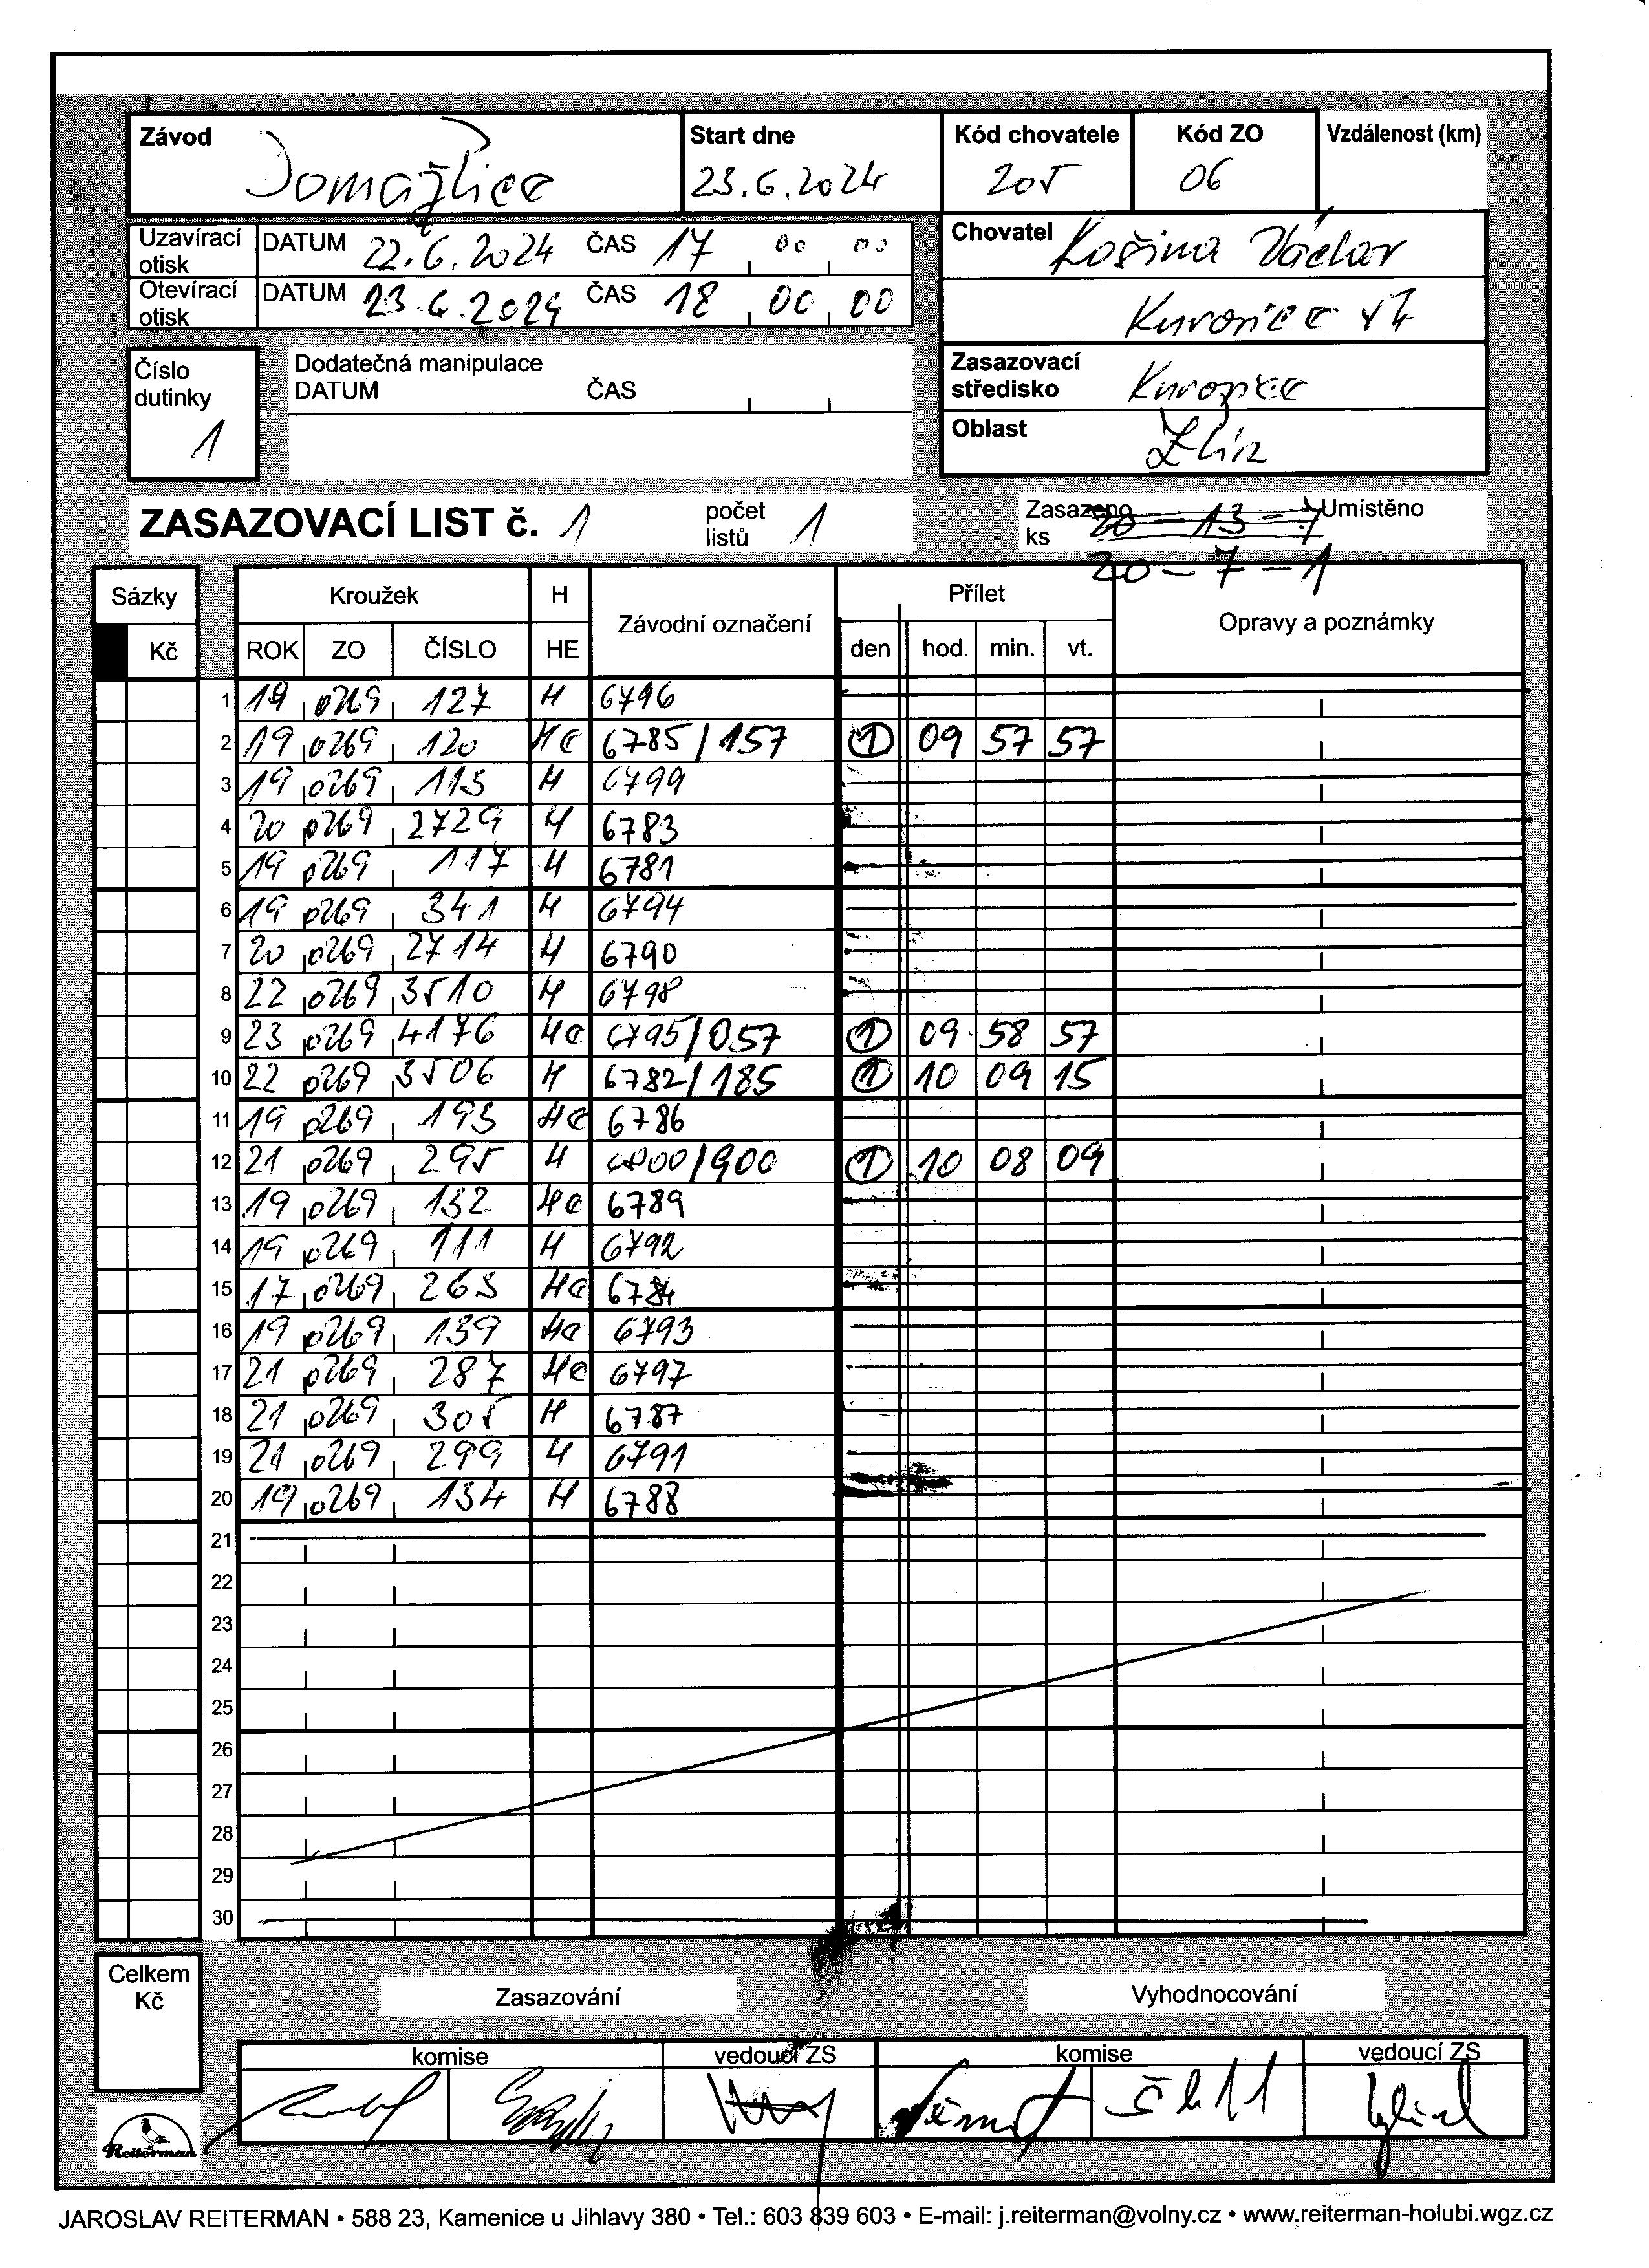 Závod Domažlice Start dne 23.6.2024 Kód chovatele 205 Kód ZO 06 Vzdálenost (km)
Uzavírací otisk DATUM 22.6.2024 ČAS 17 00 00
Otevírací otisk DATUM 23.6.2024 ČAS 18 00 00
Chovatel Košina Václav
Kurovice
Číslo dutinky 1
Dodatečná manipulace
DATUM ČAS
Zasazovací středisko Kurovice
Oblast Zlín
ZASAZOVACÍ LIST č. 1 počet listů 1 Zasazeno ks 20 - 13 - 7 Umístěno
20 - 7 - 1
Sázky Kroužek H Závodní označení Přílet Opravy a poznámky
Kč ROK ZO ČÍSLO HE den hod. min. vt.
1 19 0269 127 H 6796
2 19 0269 120 He 6785/157 1 09 57 57
3 19 0269 113 H 6799
4 20 0269 2729 H 6783
5 19 0269 117 H 6781
6 19 0269 341 H 6794
7 20 0269 2714 H 6790
8 22 0269 3510 H 6798
9 23 0269 4176 He 6795/057 1 09 58 57
10 22 0269 3506 H 6782/185 1 10 09 15
11 19 0269 193 He 6786
12 21 0269 295 H 6800/900 1 10 08 09
13 19 0269 132 He 6789
14 19 0269 111 H 6792
15 17 0269 263 He 6784
16 19 0269 139 He 6793
17 21 0269 287 He 6797
18 21 0269 305 H 6787
19 21 0269 299 H 6791
20 19 0269 134 H 6788
21
22
23
24
25
26
27
28
29
30
Celkem Kč
Zasazování Vyhodnocování
komise vedoucí ZS komise vedoucí ZS
Reiterman
JAROSLAV REITERMAN • 588 23, Kamenice u Jihlavy 380 • Tel.: 603 839 603 • E-mail: j.reiterman@volny.cz • www.reiterman-holubi.wgz.cz